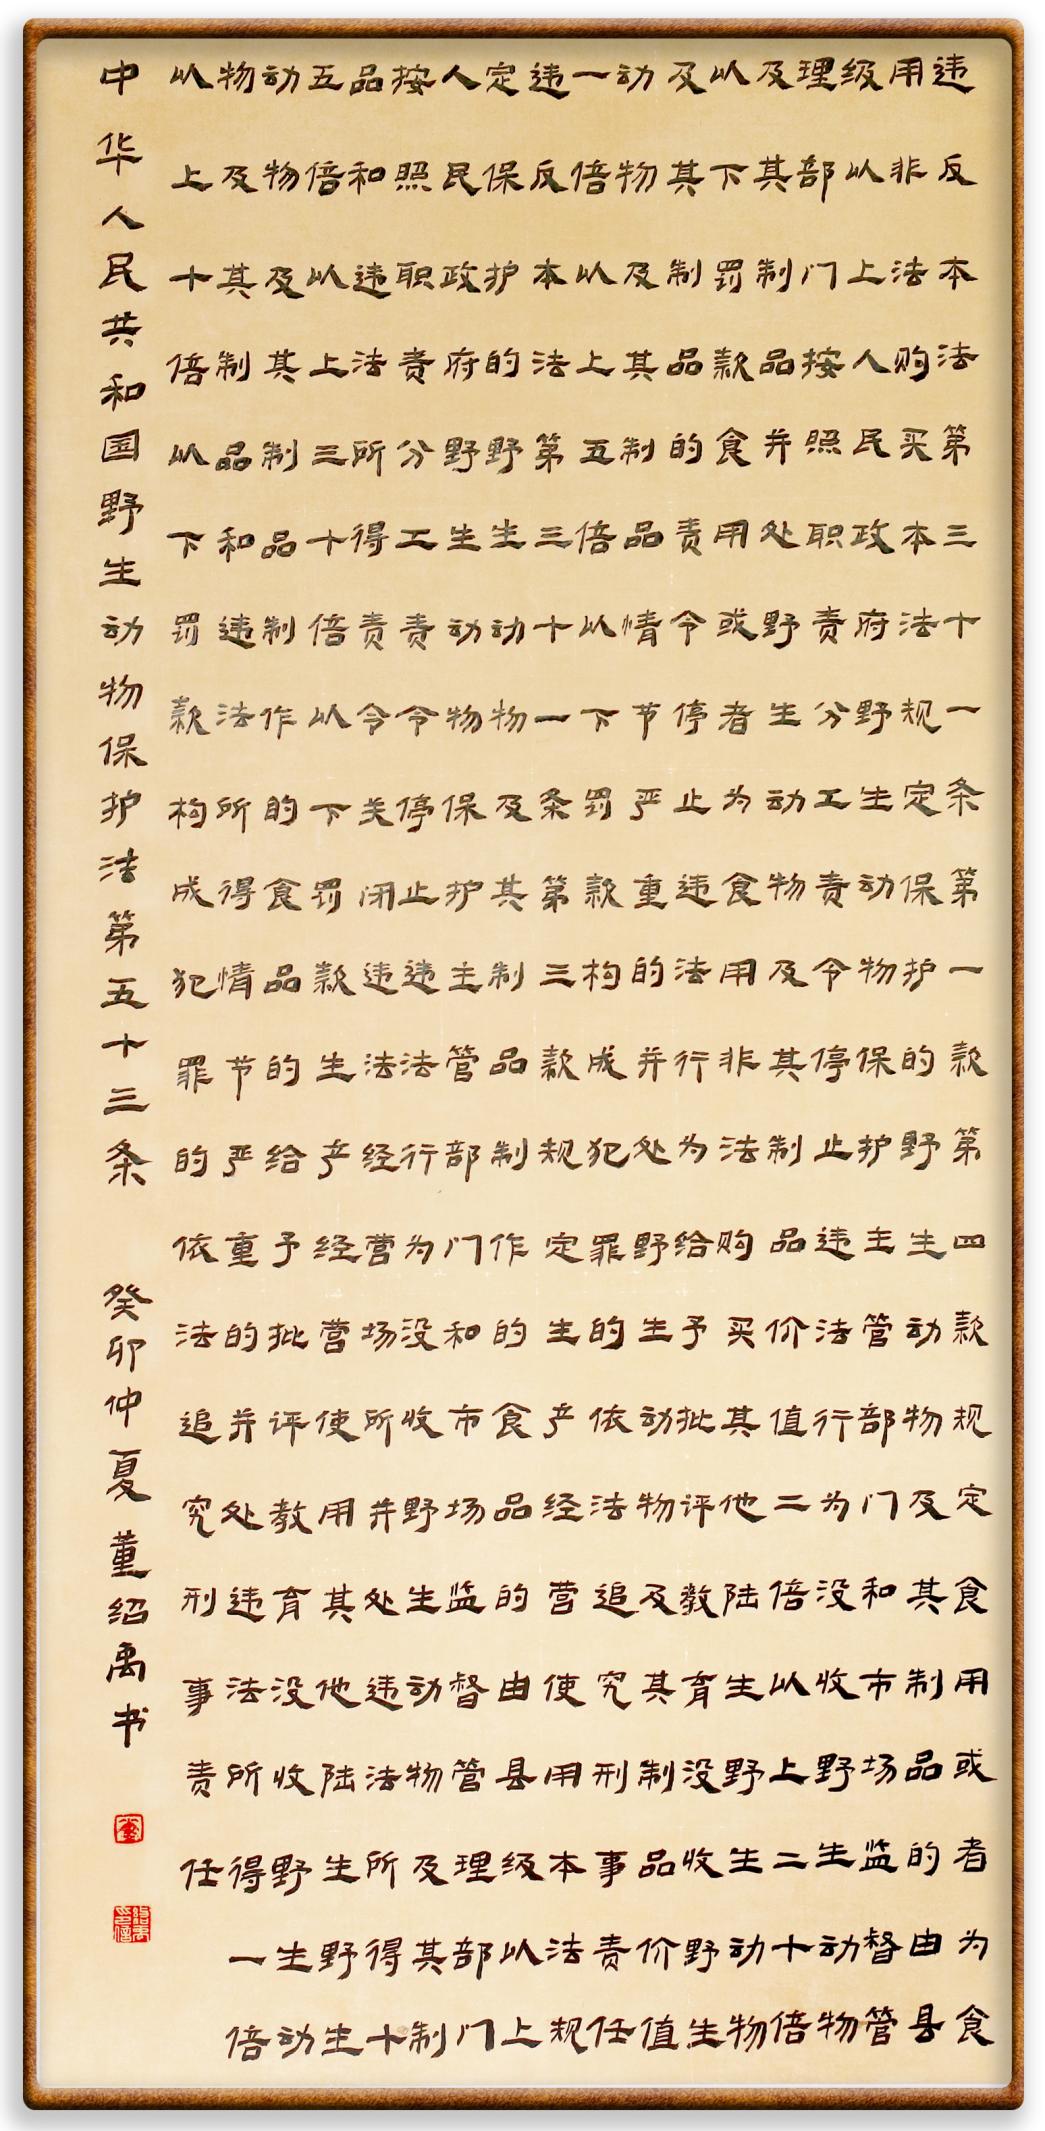 违反本法第三十一条第一款第四款规定食用或者为食
用非法购买本法规定保护的野生动物及其制品的由县
级以上人民政府野生动物保护主管部门和市场监督管
理部门按照职责分工责令停止违法行为没收野生动物
及其制品并处野生动物及其制品价值二倍以上二十倍
以下罚款食用或者为食用非法购买其他陆生野生动物
及其制品的责令停止违法行为给予批评教育没收野生
动物及其制品情节严重的并处野生动物及其制品价值
一倍以上五倍以下罚款构成犯罪的依法追究刑事责任
违反本法第三十一条第三款规定生产经营使用本法规
定保护的野生动物及其制品制作的食品的由县级以上
人民政府野生动物保护主管部门和市场监督管理部门
按照职责分工责令停止违法行为没收野生动物及其制
品和违法所得责令关闭违法经营场所并处违法所得十
五倍以上三十倍以下罚款生产经营使用其他陆生野生
动物及其制品制作的食品的给予批评教育没收野生动
物及其制品和违法所得情节严重的并处违法所得一倍
以上十倍以下罚款构成犯罪的依法追究刑事责任
中华人民共和国野生动物保护法第五十三条 癸卯仲夏董绍禹书